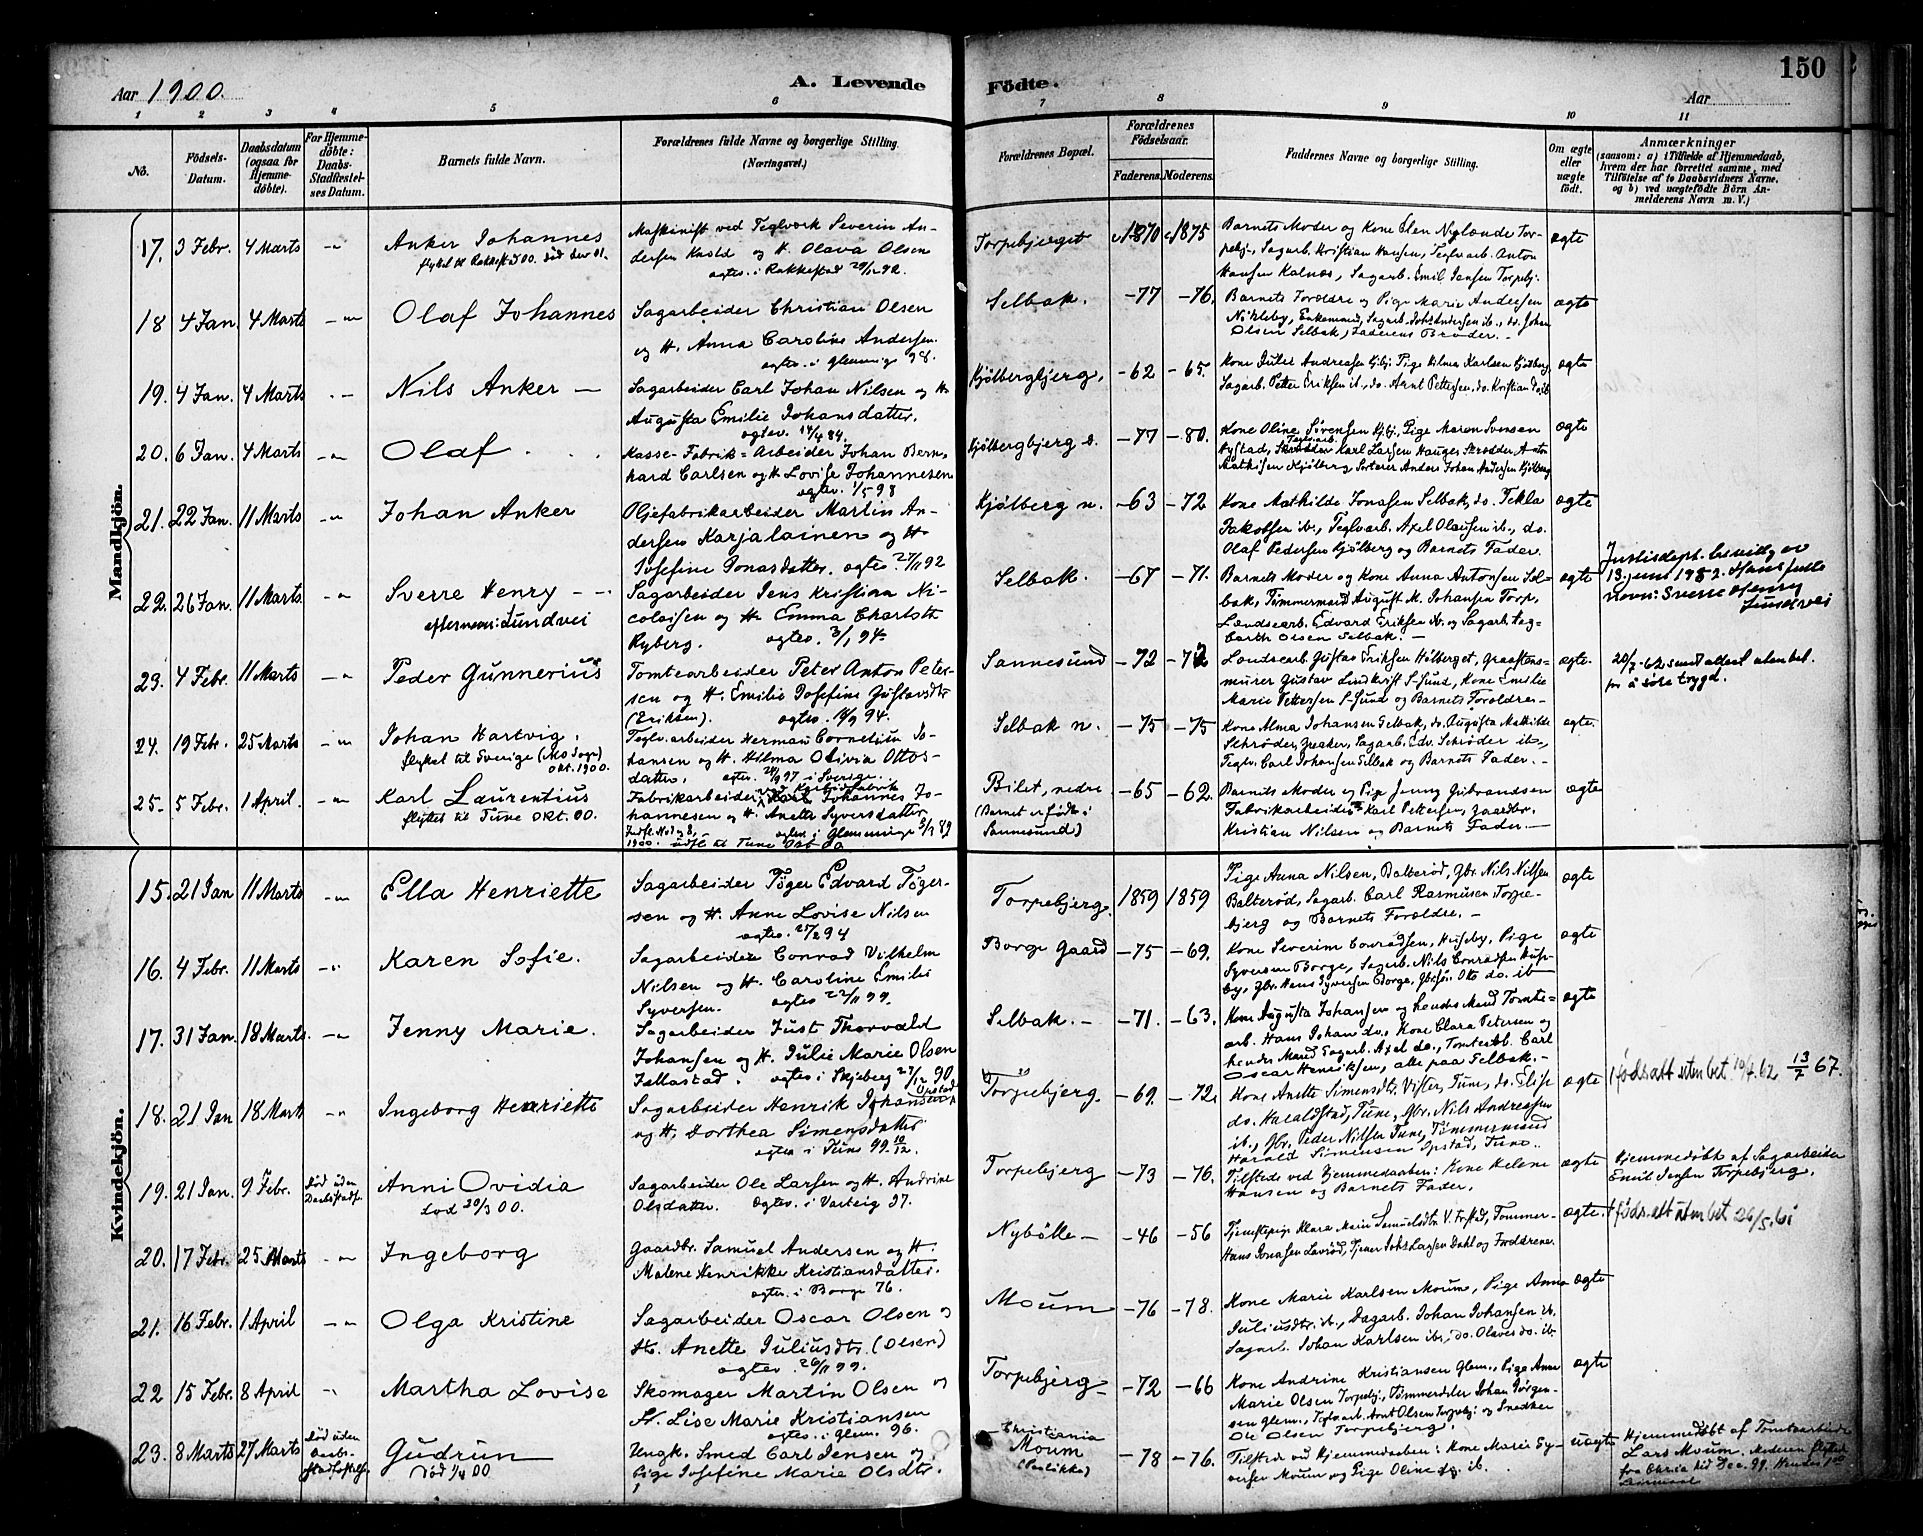 Aar 1900.
A. Levende
Födte.
150
Aar
1 2 3 4 5 6 7 8 9 10 11
No.
Födsels-Datum.
Daabsdatum (ogsaa for Hjemme-döbte).
For Hjemme-döbte: Daabs-Stadfæstel-ses Datum.
Barnets fulde Navn.
Forældrenes fulde Navne og borgerlige Stilling. (Næringsvei.)
Forældrenes Bopæl.
Forældrenes Födselsaar.
Faderens. Moderens.
Faddernes Navne og borgerlige Stilling.
Om ægte eller uægte födt.
Anmærkninger
(saasom: a) i Tilfælde af Hjemmedaab,
hvem der har forrettet samme, med
Tilföielse af to Daabsvidners Navne.
og b) ved uægtefödte Börn An-
melderens Navn m. V.)
Mandkjön.
17. 3 Febr. 4 Marts Anker Johannes
flyttet til Rakkestad 00.
Maskinist ved Teglværk Severin An-
dersen og H. Olava Olsen
ægtev. i Rakkestad
Torpebjerget 1870 1875
Barnets Moder og Kone Elen Nylænde Tor-
pebj., Sagarb. Kristian Hansen, Teglvarb. Anton
Hansen Kalnæs, Sagarb. Emil Jensen Torpebj.
ægte
18 4 Jan. 4 Marts Olaf Johannes
Sagarbeider Christian Olsen
og H. Anna Caroline Andersen.
ægtev. i Glemminge 98.
Selbak. -77 -76.
Barnets Forældre og Pige Marie Andersen
Olsen Selbak, Faderens Broder.
ægte
19. 4 Jan. 4 Marts Nils Anker
Sagarbeider Carl Johan Nilsen og H.
Augusta Emilie Johansdatter.
ægtev. 14/4 84.
Kjølbergbjerg, -62 -65
Sagarb. Petter Eriksen ib., do. Arnt Pettersen, do. Kristian do. ib.
ægte
20. 6 Jan. 4 Marts Olaf
Kasse-Fabrik-Arbeider Johan Bern-
hard Carlsen og H. Lovise Johannesen
ægtev. 1/5 98
Kjølbergbjerg -77 -80.
Kone Oline Sørensen Kjbj., Pige Maren Svensen
Nystad, Karl Larsen Hauges Skrædder Anton
Mathisen Kjølberg, Sorterer Anders Johan Andersen Kjølberg
ægte
21. 22 Jan. 11 Marts Johan Anker
Oljefabrikarbeider Martin An-
dersen Karjalainen og H.
Josefine Jonasdatter. ægtev. 27/11 92
Kjølberg n. -63 -72
Kone Mathilde Jonasen Selbak, do. Tekla
Jakobsen ib., Teglvarb. Axel Olausen ib., do.
Olaf Pedersen Kjølberg og Barnets Fader.
ægte
22. 26 Jan. 11 Marts. Sverre Henry
efternavn: Lundvei
Sagarbeider Jens Kristian Ni-
colaisen og H. Emma
Ryberg. ægtev. 3/1 94.
Selbak. -67 -71.
Barnets Moder og Kone Anna Antonsen Sel-
bak, Tømmermand August M. Johansen Torp,
Landsearb. Edvard Eriksen ib. og Sagarb.
Olsen Selbak.
ægte
Justisdept. bevillg av
13. juni 1952. Hans fulde
navn: Sverre Henry
Lundvei
23. 4 Febr. 11 Marts Peder Gunnerius
Tomtearbeider Peter Anton Peter-
sen og H. Emilie Josefine Gustavsdtr
(Eriksen). ægtev. 94.
Sannesund -72 -72
Landsearb. Gustav Eriksen Hølberget,
murer Gustav Lindkvist S-sund, Kone Emilie
Marie Pettersen S-sund og Barnets Forældre
ægte.
20/7-62 sendt attest uten bet.
for å søke trygd.
24. 19 Febr. 25 Marts Johan Hartvig.
flyttet til Sverige (Mo Sogn)
Okt. 1900.
Teglv.arbeider Herman Cornelius Jo-
hansen og H. Hilma Olivia Ottos-
datter. ægtev. i Sverige.
Selbak n. -75 -75
Kone Alma Johansen Selbak, do. Augusta Mathilde
Schrøder, Greaker, Sagarb. Edv. Schrøder ib.,
Teglv. Carl Johansen Selbak og Barnets Fader.
ægte.
25. 5 Febr. 1 April. Karl Laurentius
flyttet til Tune Okt. 00.
Fabrikarbeider Johannes Jo-
hannesen og H. Anette Syversdatter
ægtev. i Glemminge
1900. udfl. til Tune Okt. 00
Bilet, nedre
(Barnet er født i
Sannesund)
-65 -62.
Barnets Moder og Pige Jenny Gubrandsen
Fabrikarbeider Karl Pettersen, Gaardbr.
Kristian Nilsen og Barnets Fader.
ægte
Kvindekjön.
15. 21 Jan 11 Marts Ella Henriette
Sagarbeider Tøger Edvard Tøger-
sen og H. Anne Lovise Nilsen
ægtev. 27/2 94
Torpebjerg. 1859 1859
Pige Anna Nilsen, Balterød, Gbr. Nils Nilsen
Balterød, Sagarb. Carl Rasmusen Torpe-
bjerg og Barnets Forældre.
ægte
16. 4 Febr. 11 Marts Karen Sofie.
Sagarbeider Conrad Vilhelm
Nilsen og H. Caroline Emilie
Syversen. ægtev. 99.
Borge Gaard -75 -69.
Kone Severine Conradsen, Huseby, Pige
Syversen Borge, Sagarb. Nils Conradsen Huse-
by, Gbr. Hans Syversen Borge, Otto do. ib
ægte
17. 31 Jan. 18 Marts. Jenny Marie.
Sagarbeider Just Thorvald
Johansen og H. Julie Marie Olsen
Jellestad. ægtev. i Skjeberg 90
Selbak. -71. -63.
Kone Augusta Johansen og hendes Mand Tomte-
arb. Hans Johan do., Kone Clara Petersen og
hendes Mand Sagarb. Axel do., Tomtearb. Carl
Oscar Henriksen, alle paa Selbak.
ægte
18. 21 Jan 18 Mart Ingeborg Henriette
Sagarbeider Henrik Johansen
Opstad
og H. Dorthea Simensdatter
ægtev. i Tune 99 10/12.
Torpebjerg. -69. -72.
Kone Anette Simensdtr. Vister, Tune, do. Elise
do. Haraldstad, Tune, Gbr. Nils Andreassen
ib., Gbr. Peder Nilsen Tune, Tømmermand
Harald Simensen Opstad, Tune.
ægte
føds.att uten bet. 19/4.62 13/7 67.
19. 21 Jan. 9 Febr. død uden Daabsstadf. Anni Ovidia
død 00.
Sagarbeider Ole Larsen og H. Andrine
Olsdatter. ægtev. i Varteig 97.
Torpebjerg -73 -76.
Tilstede ved Hjemmedaaben: Kone Helene
Hansen og Barnets Fader.
ægte
Hjemmedøbt af Sagarbeider
Emil Jensen Torpebjerg.
20. 17 Febr. 25 Marts Ingeborg
Gaardbr. Samuel Andersen og H.
Malene Henrikke Kristiansdatter.
ægtev. i Borge 76.
Nybølle -46 -56
Tjenestepige Klara Marie Samuelsdtr.
Hans Jonasen Lervød, Tjener Johs Larsen Dahl og Fadderne
ægte.
føds.att uten bet. 26/5.61
21. 16 Febr. 1 April Olga Kristine
Sagarbeider Oscar Olsen og
H. Anette Juliusdtr. (Olsen)
ægtev. 26/11 99.
Moum -76 -78.
Kone Marie Karlsen Moum, Pige Anna
Juliusdtr. ib., Dagarb. Johan Johansen ib.
Sagarb. Johan Karlsen ib., do. Olaves do. ib.
ægte
22 15 Febr. 8 April Martha Lovise
Skomager Martin Olsen og
H. Lise Marie Kristiansen
ægtev. i Glem. 96.
Torpebjerg -72 -66
Kone Andrine Kristiansen Glem., Pige Anne
Marie Olsen Torpebj., Tømmerdeler Johan Jørgen-
sen Glem., Teglvarb. Arnt Olsen Torpebj. og Snedker
Ole Olsen Torpebjerg.
ægte
23. 8 Marts 27 Marts død uden Daabs-stadfæstelse Gudrun
død 00
Ungk. Smed Carl Jensen og
Pige Josefine Marie Olsdtr.
Christiania
Moum
-78 -76.
Tilstede ved Hjemmedaaben: Kone Marie Sy-
versen Moum og Pige Oline do. ib.
uægte
Hjemmedøbt af Tomtearbeider
Lars Moum. Moderen flyttede
fra Chria ved Dec. 99.